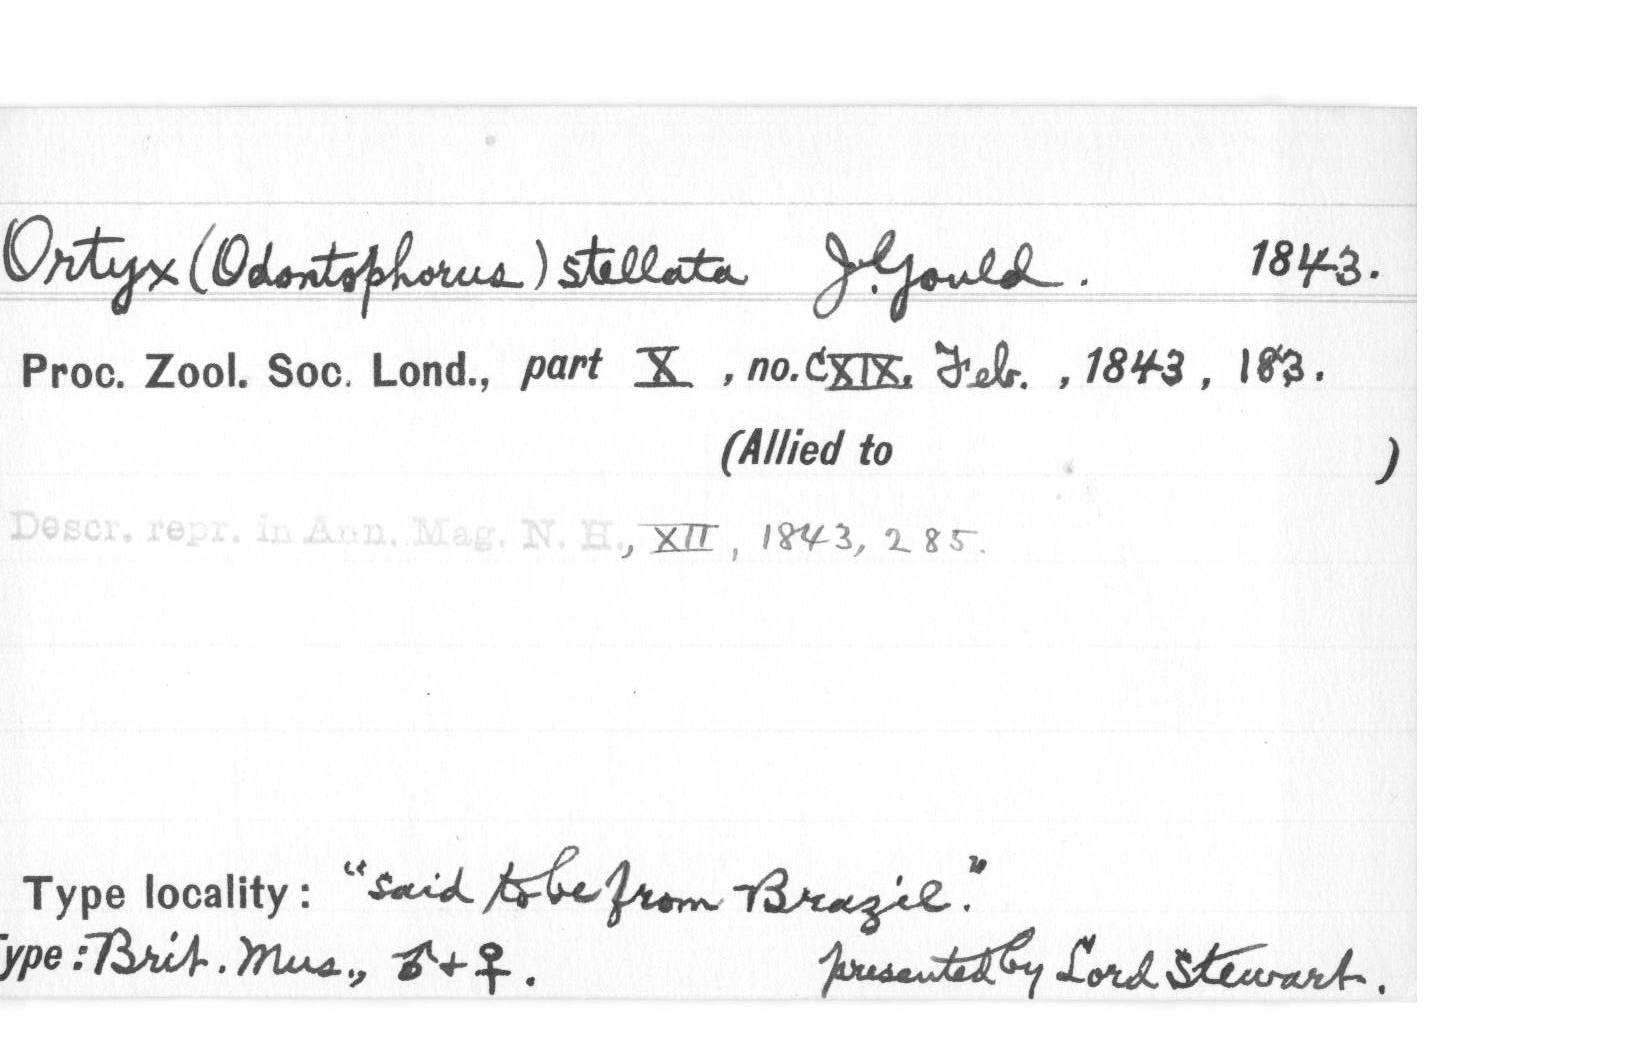 Ortyx (Odontophorus) stellata J. Gould. 1843.
Proc. Zool. Soc. Lond., part X, no. CXIX, Feb., 1843, 183.
(Allied to )
Descr. repr. in Ann. Mag. N. H., XII, 1843, 285.
Type locality: "said to be from Brazil."
Type: Brit. Mus., ♂ + ♀. presented by Lord Stewart.